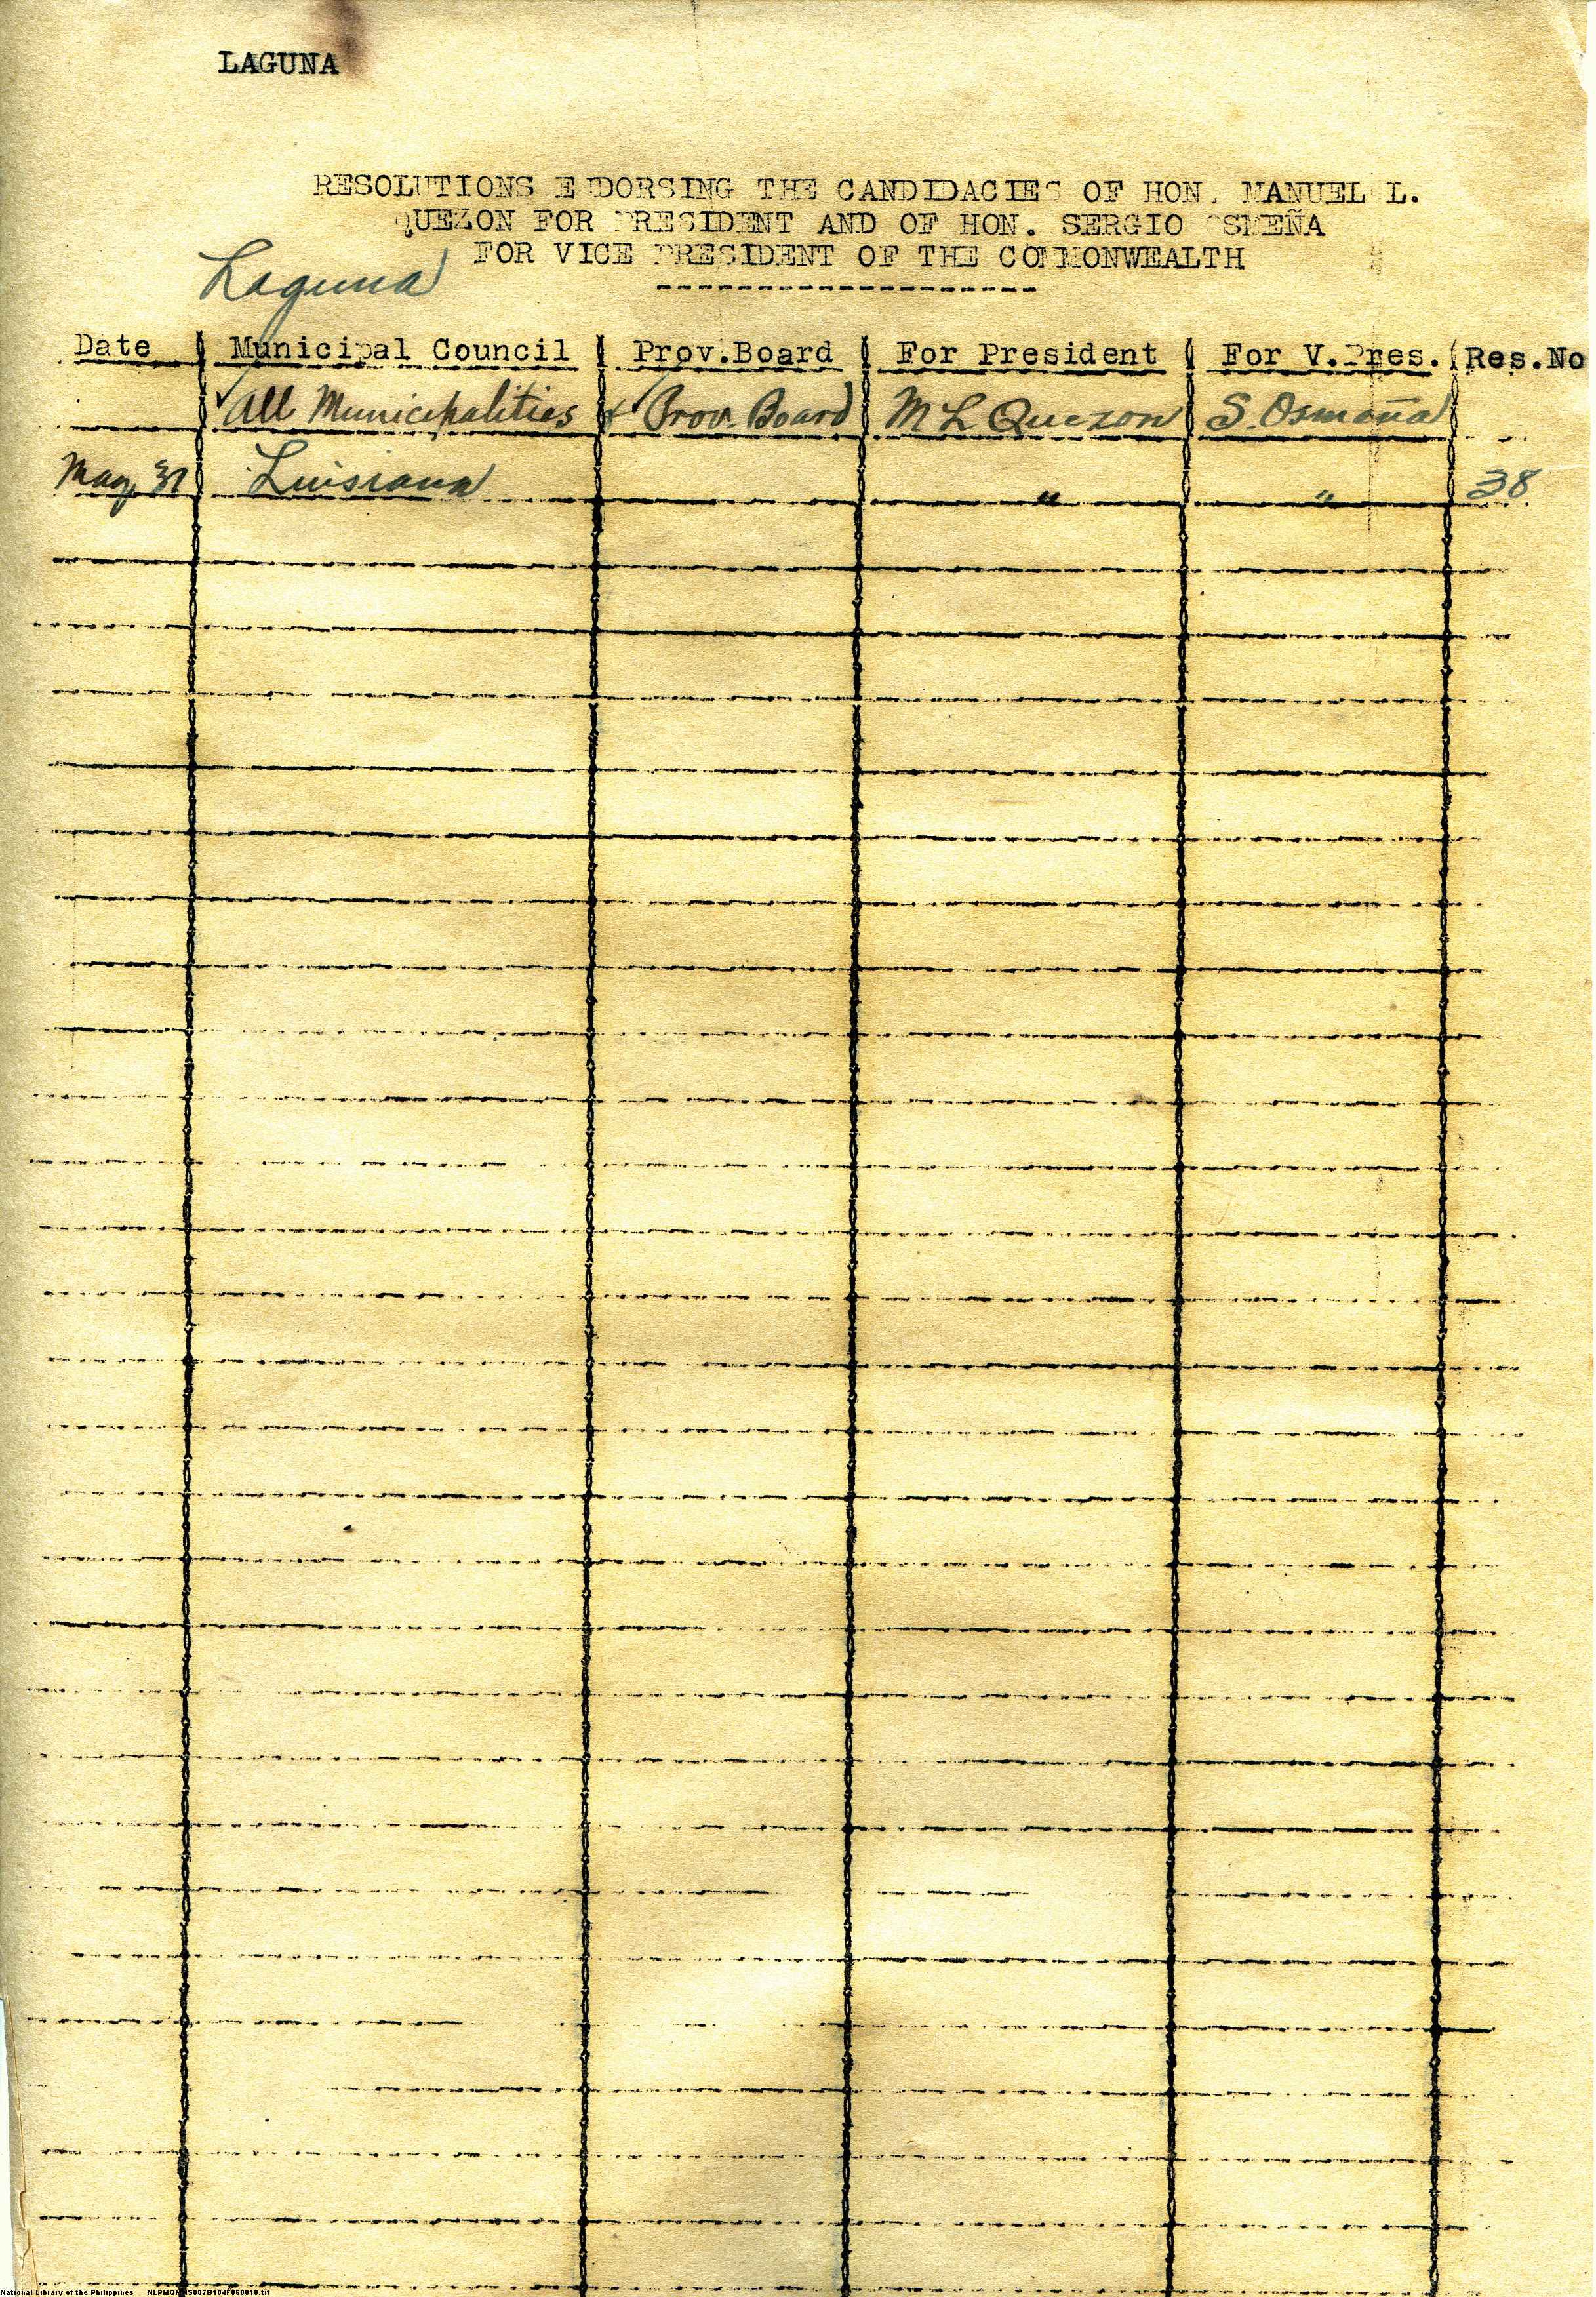 LAGUNA
RESOLUTIONS ENDORSING THE CANDIDACIES OF HON. MANUEL L.
QUEZON FOR PRESIDENT AND OF HON. SERGIO OSMEÑA
FOR VICE PRESIDENT OF THE COMMONWEALTH
Laguna
Date Municipal Council Prov.Board For President For V.Pres. Res.No
✓ All Municipalities & Prov. Board M L Quezon S. Osmeña
May 31 Luisiana " " 38
National Library of the Philippines NLPMQMNS007B104F060018.tif